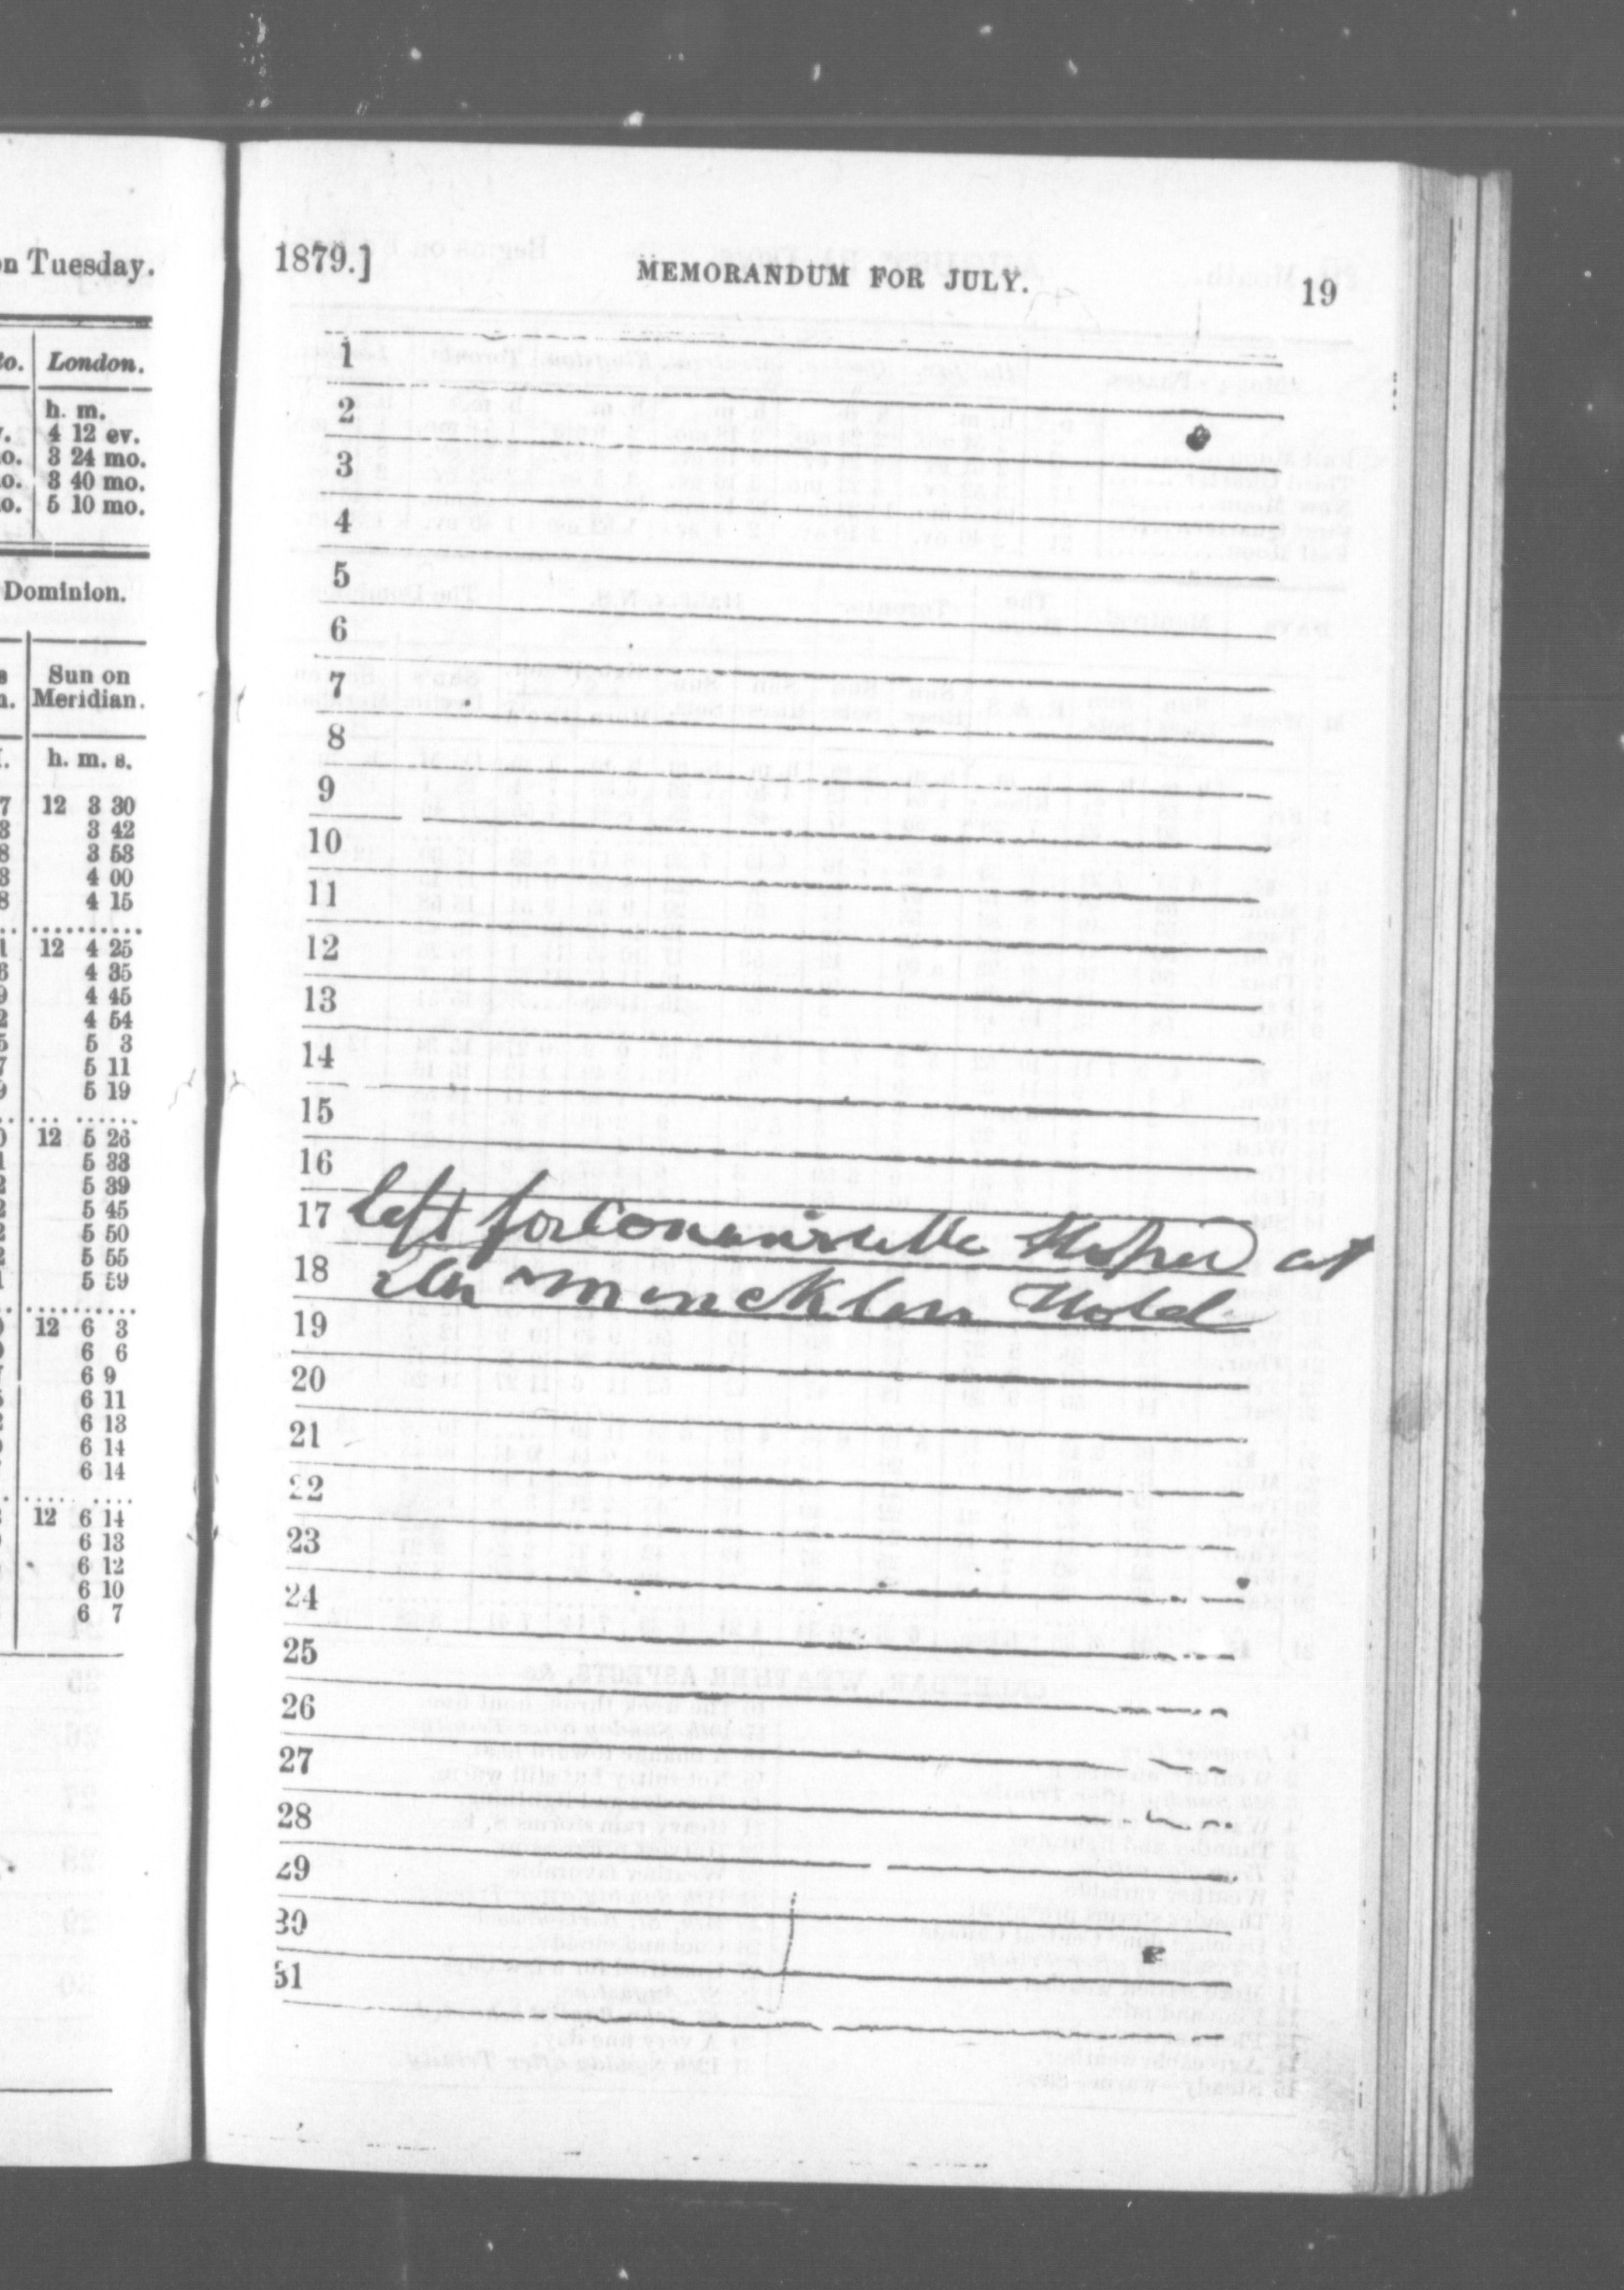 on Tuesday.
to. London.
h. m.
v. 4 12 ev.
o. 3 24 mo.
o. 3 40 mo.
o. 5 10 mo.
Dominion.
Sun on
Meridian.
h. m. s.
7 12 3 30
3 3 42
8 3 53
3 4 00
8 4 15
1 12 4 25
6 4 35
9 4 45
2 4 54
5 5 3
7 5 11
9 5 19
0 12 5 26
1 5 33
2 5 39
2 5 45
2 5 50
2 5 55
1 5 59
12 6 3
6 6
6 9
6 11
6 13
6 14
6 14
12 6 14
6 13
6 12
6 10
6 7
1879.] MEMORANDUM FOR JULY. 19
1
2
3
4
5
6
7
8
9
10
11
12
13
14
15
16
17 left for at
18
19
20
21
22
23
24
25
26
27
28
29
30
31